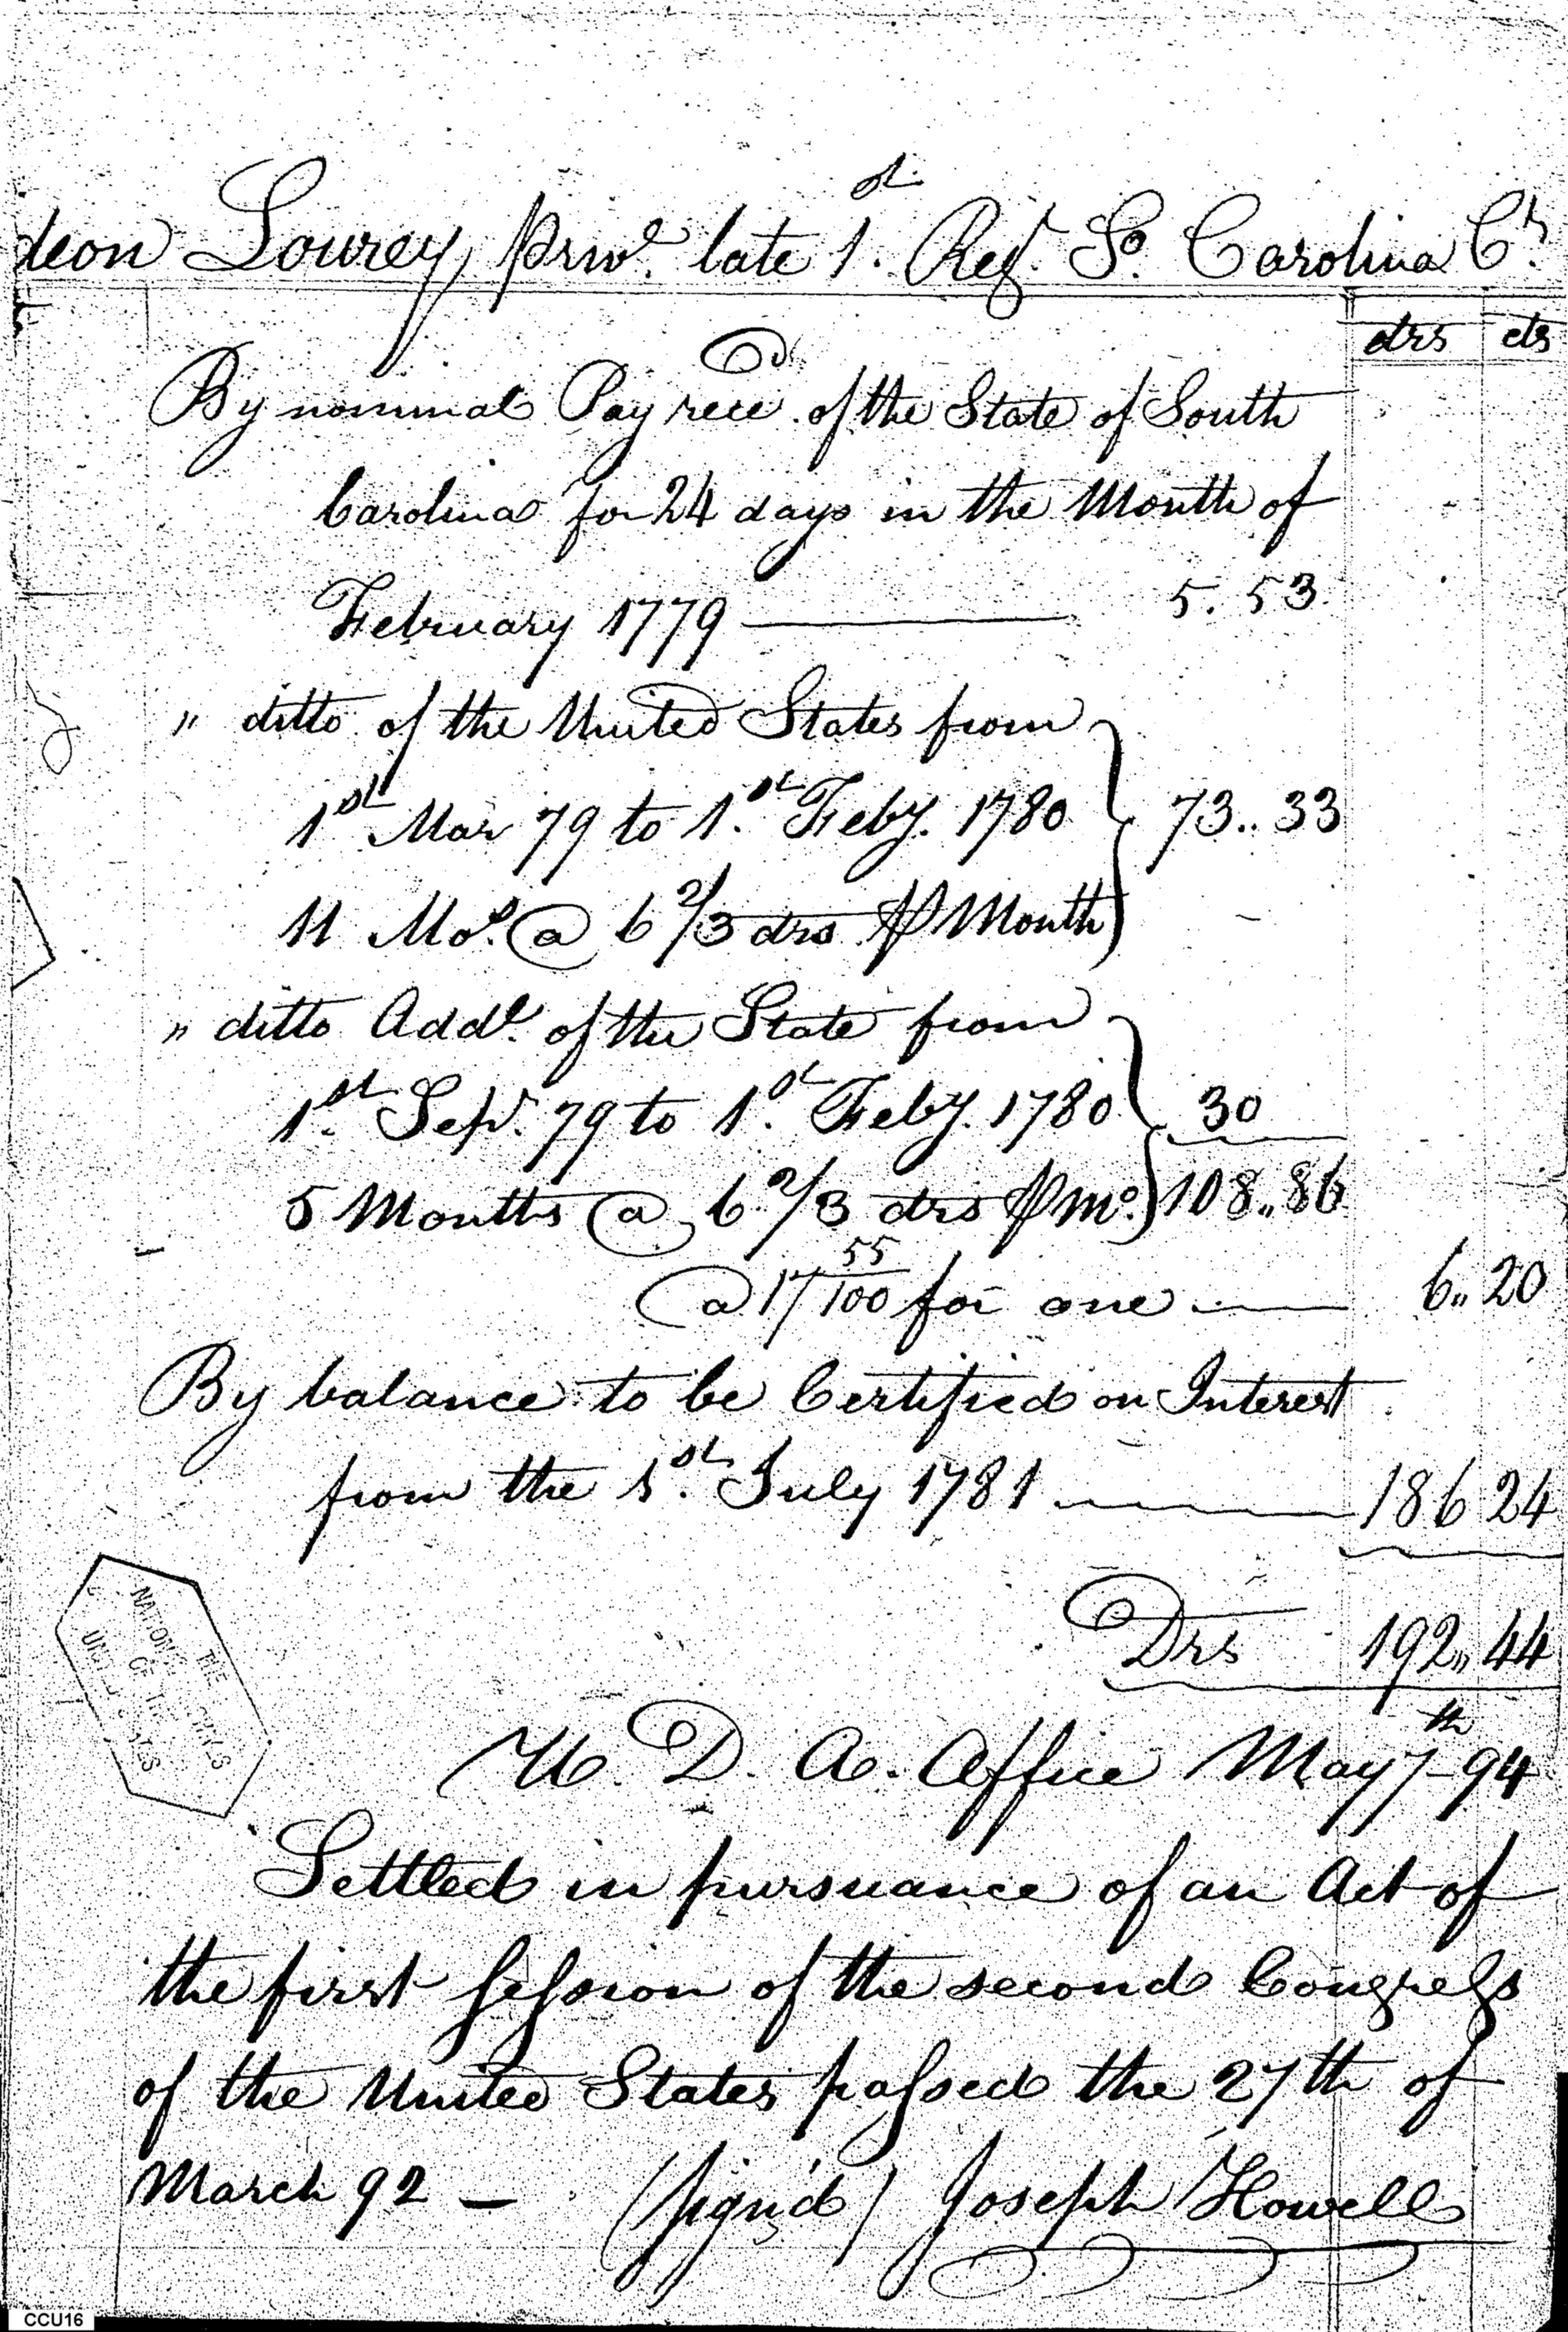 deon Lourey, Priv.e late 1.st Reg.t So. Carolina C.r
drs cts
Cr.
By nominal Pay rece.d of the State of South
Carolina for 24 days in the Month of
February 1779 — 5.53
" ditto of the United States from
1st Mar 79 to 1.st Feby. 1780 73..33
11 Mo.s @ 6 2/3 drs ⅌ Month
" ditto Add.l of the State from
1.st Sep.r 79 to 1.st Feby. 1780 30
5 Months @ 6 2/3 drs ⅌ mo. 108..86
@ 17 55/100 for one — 6..20
By balance to be Certified on Interest
from the 1.st July 1781 — 186 24
Drs 192.. 44
D. A. Office May 7th 94
Settled in pursuance of an Act of
the first Session of the second Congress
of the United States passed the 27th of
March 92 — (Sign'd) Joseph Howell
THE
NATIONAL ARCHIVES
OF THE
UNITED STATES
CCU16